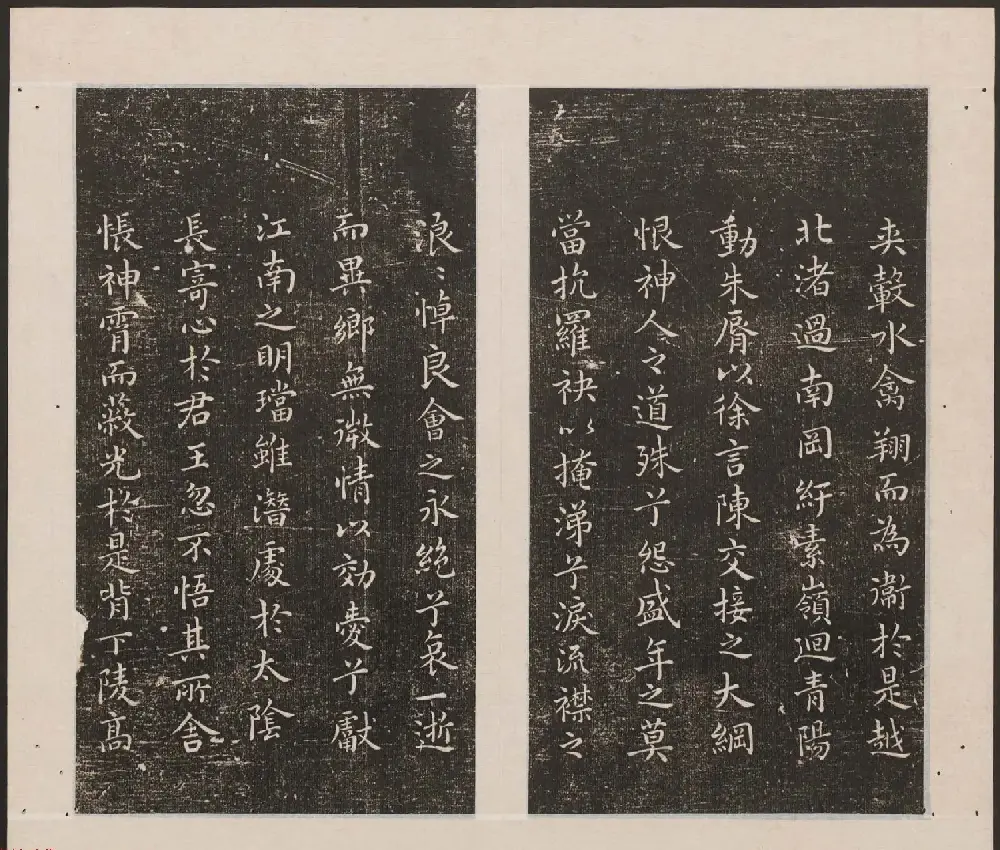 夾轂水禽翔而為衞於是越
北渚過南岡紆素嶺迴青陽
動朱脣以徐言陳交接之大綱
恨神人之道殊兮怨盛年之莫
當抗羅袂以掩涕兮淚流襟之
浪〻悼良會之永絕兮哀一逝
而異鄉無微情以效愛兮獻
江南之明璫雖潛處於太陰
長寄心於君王忽不悟其所舍
悵神霄而蔽光於是背下陵高